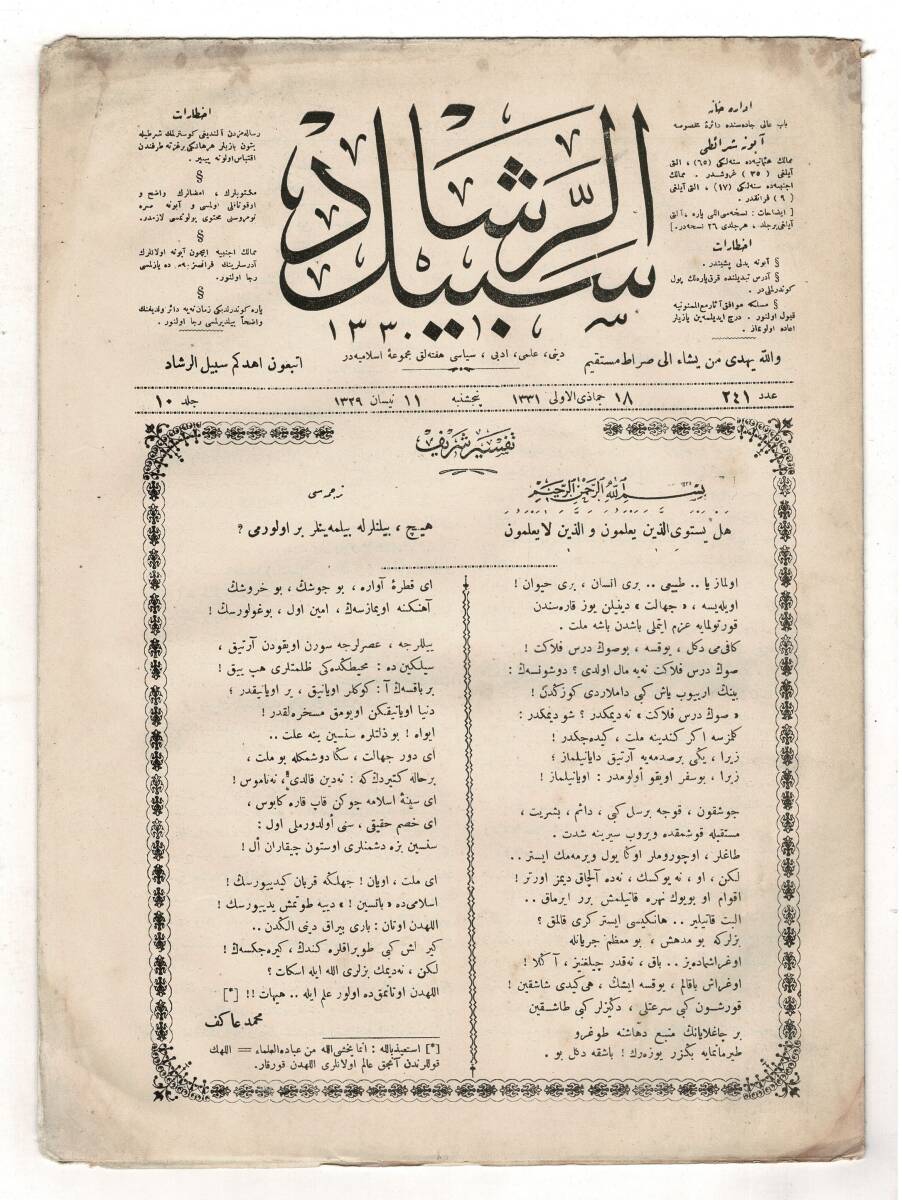 اداره خانه
باب عالی جاده‌سنده دائرهٔ مخصوصه
آبونه شرائطی
ممالك عثمانیه‌ده سنه‌لكی (٦٥) ، التی
آیلغی ( ٣٥ ) غروشدر . ممالك
اجنبیه‌ده سنه‌لكی (١٧) ، التی آیلغی
( ٩ ) فرانقدر .
[ ایضاحات : نسخه‌سی اللی پاره ، آلتی
آیلغی برجلد ، هر جلدی ٢٦ نسخه‌در .]
اخطارات
§ آبونه بدلی پشیندر .
§ آدرس تبدیلنده قرق پاره‌لق پول
كوندرلمی‌در .
§ مسلكه موافق آثار مع الممنونیه
قبول اولنور . درج ایدیلمه‌ین یازیلر
اعاده اولونماز .
الرشاد
سبیل
١٣٣٠
اخطارات
رساله‌مزدن آلندیغی كوسترلمك شرطیله
بتون یازیلر هرهانكی برغزته طرفندن
اقتباس اولونه بیلیر .
§
مكتوبلرك ، امضالرك واضح و
اوقوناقلی اولمسی و آبونه صره
نومروسی محتوی بولونمسی لازمدر .
§
ممالك اجنبیه ایچون آبونه اولانلرك
آدرسلرینك فرانسزجه ده یازلمسی
رجا اولنور .
§
پاره كوندرلدیكی زمان نه‌یه دائر ولدیغنك
واضحاً بیلدیرلمسی رجا اولنور .
والله یهدی من یشاء الی صراط مستقیم
دینی ، علمی ، ادبی ، سیاسی هفته‌لق مجموعهٔ اسلامیه‌در
اتبعون اهدكم سبیل الرشاد
عدد ٢٤١
١٨ جماذی‌الاولی ١٣٣١
پنجشنبه
١١ نیسان ١٣٢٩
جلد ١٠
تفسیر شریف
بسم الله الرحمن الرحیم
هل یستوی الذین یعلمون و الذین لا یعلمون
ترجمه‌سی
هیچ ، بیلنلرله بیلمه‌ینلر بر اولورمی ؟
اولماز یا .. طبیعی .. بری انسان ، بری حیوان !
اویله‌یسه ، « جهالت » دینیلن یوز قاره‌سندن
قورتولمایه عزم ایتملی باشدن باشه ملت .
كافی‌می دكل ، یوقسه ، بوصوك درس فلاكت !
صوك درس فلاكت نه‌یه مال اولدی ؟ دوشونسه‌ك :
بینك اریییوب یاش كبی داملاردی كوزكدن !
« صوك درس فلاكت » نه دیمكدر ؟ شو دیمكدر :
كلزسه اكر كندینه ملت ، كیده‌جكدر !
زیرا ، یكی برصدمه‌یه آرتیق دایانیلماز ؛
زیرا ، بوسفر اویقو أولومدر : اویانیلماز !
جوشقون ، قوجه برسل كبی ، دائم ، بشریت ،
مستقبله قوشمقده ویروب سیرینه شدت .
طاغلر ، اوچوروملر اوكا یول ویرمه‌مك ایستر ..
لكن ، او ، نه یوكسك ، نه‌ده آلچاق دیمز اورتر !
اقوام او بویوك نهره قاتیلمش برر ایرماق ..
البت قاتیلیر .. هانكیسی ایستر كری قالمق ؟
بزلركه بو مدهش ، بو معظم جریانله
اوغراشماده‌یز .. باق ، نه‌قدر چیلغنیز ، آكلا !
اوغراش باقالم ، یوقسه ایشك ، هی كیدی شاشقین !
قورشون كبی سرعتلی ، دكیزلر كبی طاشقین
بر چاغلایانك منبع دهاشنه طوغرو
طیرمانمایه بكزر یوزه‌رك ! باشقه دكل بو .
ای قطرهٔ آواره ، بو جوشك ، بو خروشك
آهنكنه اویمازسه‌ك ، امین اول ، بوغولورسك !
ییللرجه ، عصرلرجه سورن اویقودن آرتیق ،
سیلكین ده : محیطكده‌كی ظلمتلری هپ ییق !
بر باقسه‌ك آ : كوكلر اویانیق ، یر اویانیقدر ؛
دنیا اویانیقكن اویومق مسخره‌لقدر !
ایواه ! بو ذلتلره سنسین ینه علت ..
ای دور جهالت ، سكا دوشمكله بو ملت ،
برحاله كتیردك كه : نه‌دین قالدی ، نه‌ناموس !
ای سینهٔ اسلامه چوكن قاپ قاره كابوس ،
ای خصم حقیقی ، سنی أولدورملی اول :
سنسین بزه دشمنلری اوستون چیقاران أل !
ای ملت ، اویان ! جهلكه قربان كیدییورسك !
اسلامی‌ده « باتسین ! » دییه طوتمش یدییورسك !
اللهدن اوتان : باری بیراق دینی الكدن ..
كیر لش كبی طوپراقلره كندك ، كیره‌جكسه‌ك !
لكن ، نه‌دیمك بزلری الله ایله اسكات ؟
اللهدن اوتانمق‌ده اولور علم ایله .. هیهات !! [*]
محمد عاكف
[*] استعیذ بالله : انما یخشی الله من عباده العلماء = اللهك
قوللرندن آنجق عالم اولانلری اللهدن قورقار .